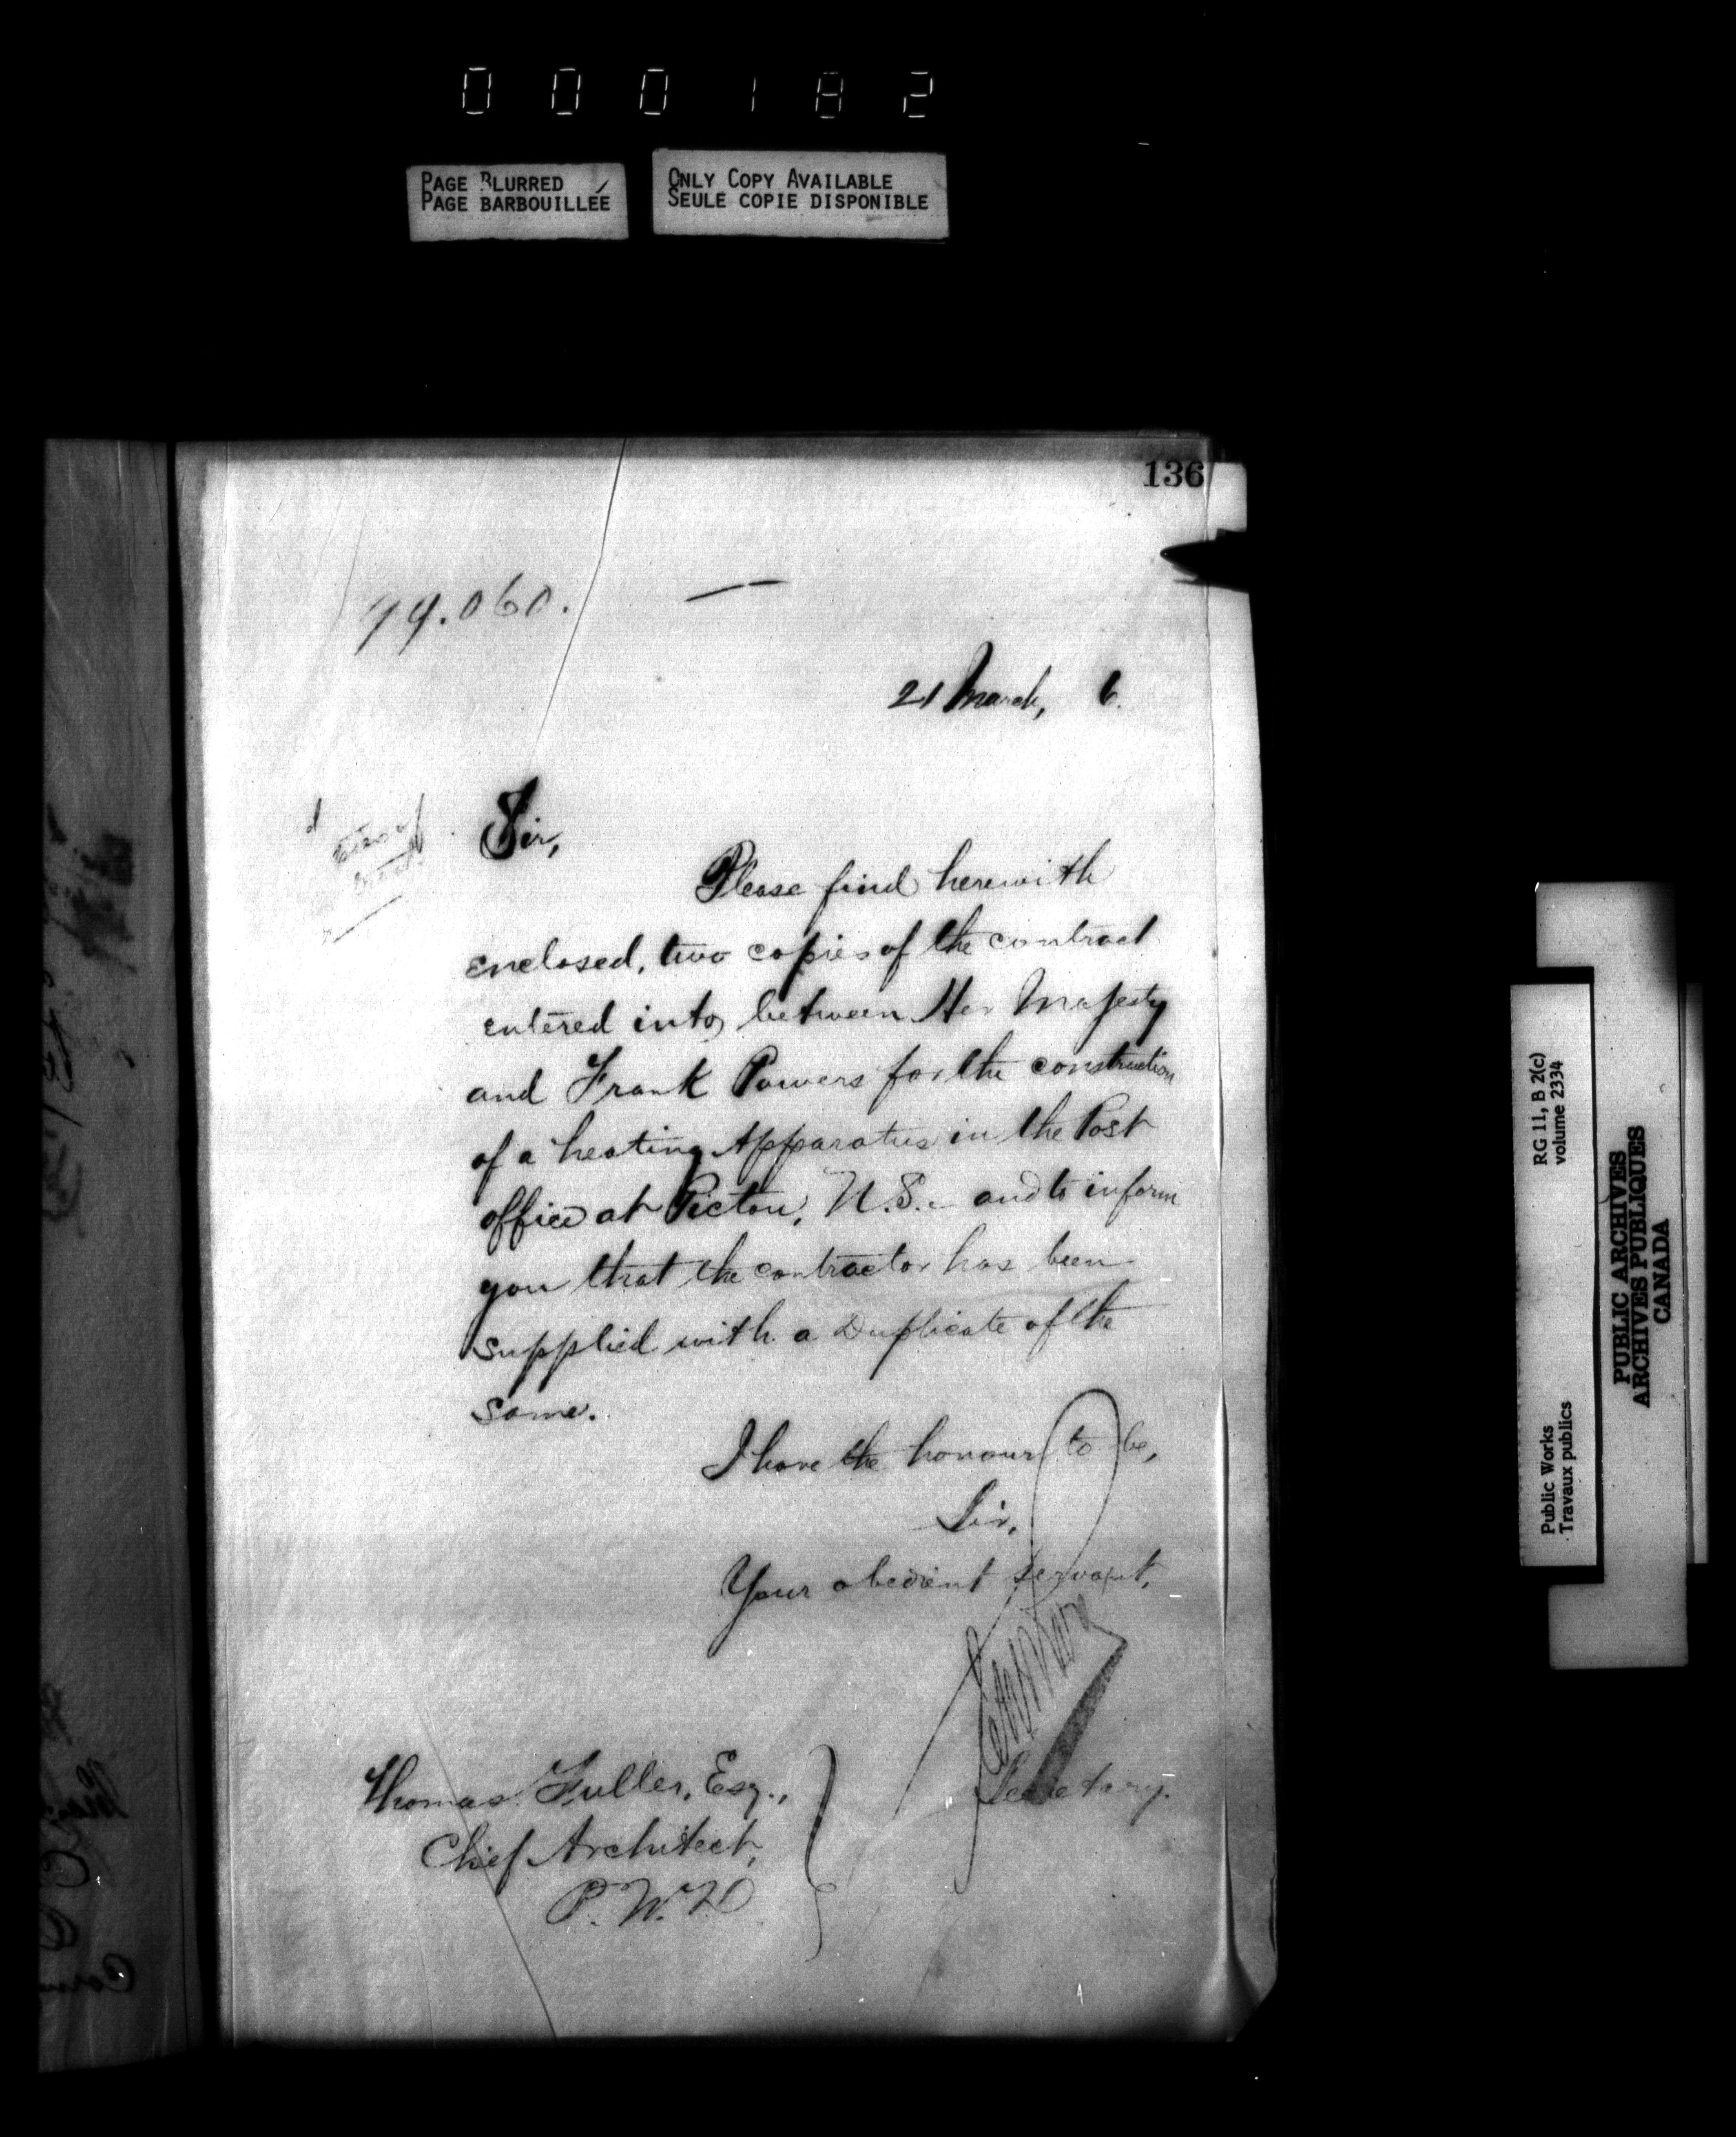 000182
PAGE BLURRED
PAGE BARBOUILLÉE
ONLY COPY AVAILABLE
SEULE COPIE DISPONIBLE
136
21 March, 6.
Sir,
Please find herewith
enclosed, two copies of the contract
entered into, between Her Majesty
and Frank Powers for the construction
of a heating Apparatus in the Post
office at Pictou, N.S. - and to inform
you that the contractor has been
supplied with a Duplicate of the
same.
I have the honour to be,
Sir,
Your obedient servant,
Secretary.
Thomas Fuller, Esq.,
Chief Architect,
P.W.D
RG 11, B 2(c)
volume 2334
Public Works
Travaux publics
PUBLIC ARCHIVES
ARCHIVES PUBLIQUES
CANADA